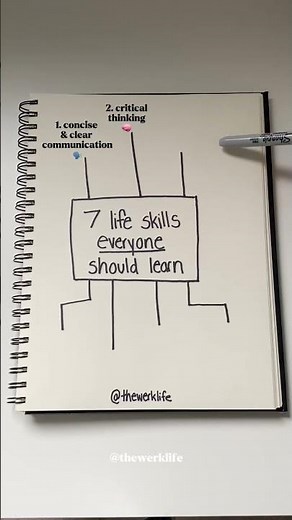 2. critical
thinking
1. concise
& clear
communication
Sharpie
7 life skills
everyone
should learn
@thewerklife
@thewerklife